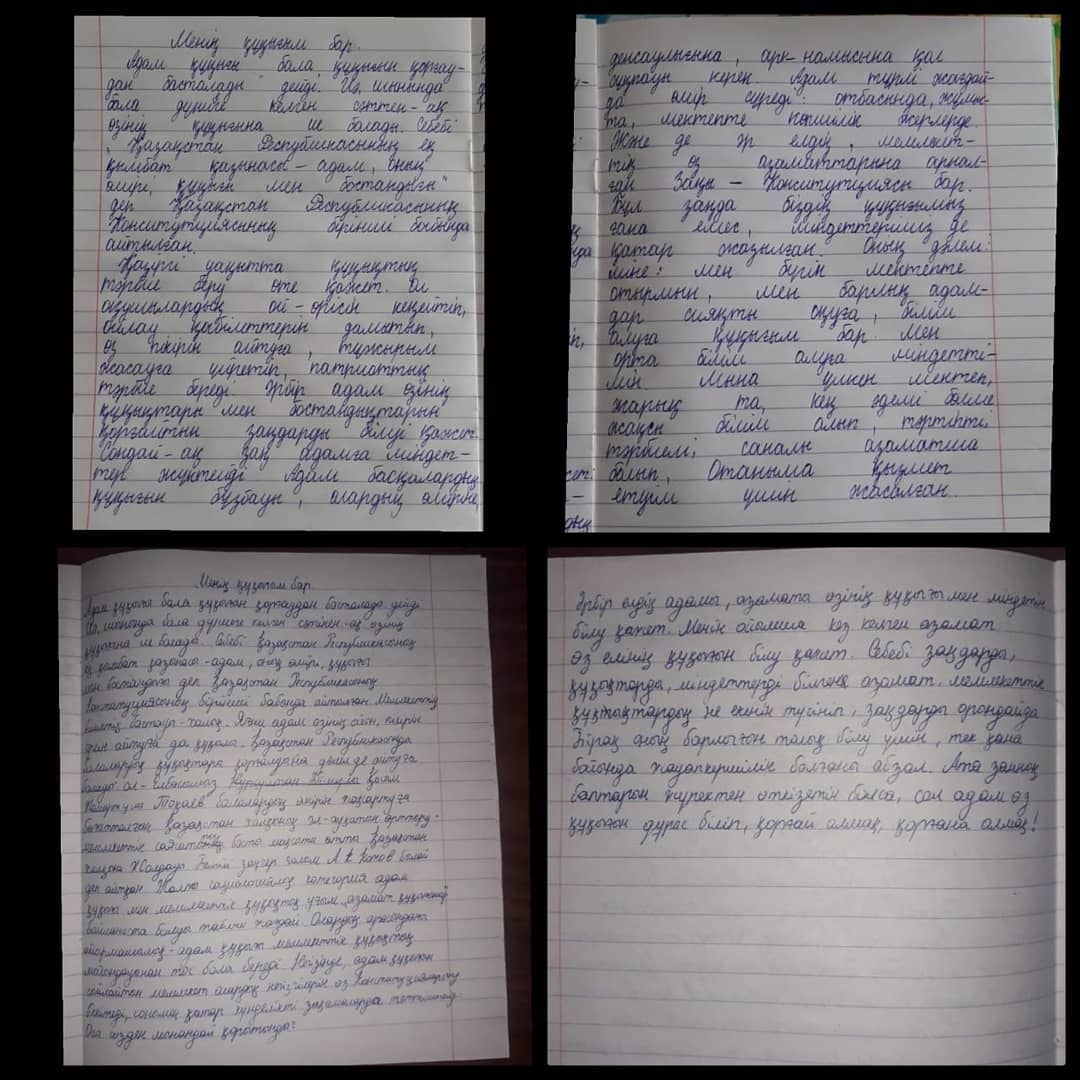 Менің құқығым бар.
Адам құқығы бала құқығын қорғау-
дан басталады дейді. Иә, шынында
бала дүниеге келген сәттен-ақ
өзінің құқығына ие болады. Себебі
„Қазақстан Республикасының ең
қымбат қазынасы – адам, оның
өмірі, құқығы мен бостандығы"
деп Қазақстан Республикасының
Конституциясының бірінші бабында
айтылған.
Қазіргі уақытта құқықтық
тәрбие беру өте қажет. Ол
оқушылардың ой-өрісін кеңейтіп,
ойлау қабілеттерін дамытып,
өз пікірін айтуға, тұжырым
жасауға үйретіп, патриоттық
тәрбие береді. Әрбір адам өзінің
құқықтары мен бостандықтарын
қорғайтын заңдарды білуі қажет.
Сондай-ақ заң адамға міндет-
тер жүктейді. Адам басқалардың
құқығын бұзбауы, олардың өміріне,
денсаулығына, ар-намысына қол
сұқпауы керек. Адам түрлі жағдай-
да өмір сүреді: отбасында, жұмыс-
та, мектепте көпшілік жерлерде.
Және де әр елдің, мемлекет-
тің өз азаматтарына арнал-
ған Заңы – Конституциясы бар.
Бұл заңда біздің құқығымыз
ғана емес, міндеттеріміз де
қатар жазылған. Оның дәлелі:
міне: мен бүгін мектепте
отырмын, мен барлық адам-
дар сияқты оқуға, білім
алуға құқығым бар. Мен
орта білім алуға міндетті-
мін. Мына үлкен мектеп,
жарық та, кең әдемі бөлме
жақсы білім алып, тәртіпті,
тәрбиелі, саналы азаматша
болып, Отаныма қызмет
етуім үшін жасалған.
Менің құқығым бар.
Адам құқығы бала құқығын қорғаудан басталады дейді
Иә, шынында бала дүниеге келген сәтінен-ақ өзінің
құқығына ие болады. Себебі Қазақстан Республикасының
ең қымбат қазынасы-адам, оның өмірі, құқығы
мен бостандығы деп Қазақстан Республикасының
Конституциясының бірінші бабында айтылған. Мемлекеттің
биліктің бастауы-халық. Яғни адам өзінің ойын, пікірін
еркін айтуға да құқылы. Қазақстан Республикасында
балалардың құқықтары қорғалдына дәлел де айтуға
болады. Ол- Елбасымыз Қасым
Жомарт Тоқаев балалардың өмірін жақсартуға
бағытталған Қазақстан халқының әл-ауқатын арттыру-
мемлекеттік саясаттың басты мақсаты атты Қазақстан
халқына Жолдауы. Белгілі заңгер ғалым былай
деп айтқан. Жалпы социологиялық категория адам
құқығы мен мемлекеттік құқықтық ұғым „азамат құқығының"
байланыста болуы табиғи жағдай. Олардың арасындағы
айырмашылық-адам құқығы мемлекеттік құқықтың
тыс бола береді. Негізінде, адам құқығын
сыйлайтын мемлекет олардың негізгілерін өз Конституцияларында
бекітеді, сонымен қатар күнделікті заңнамаларда
Ұлы сөзден мынандай қорытынды:
Әрбір елдің адамы, азаматы өзінің құқығы мен міндетін
білу қажет. Менің ойымша кез келген азамат
өз елінің құқығын білу қажет. Себебі заңдарды,
құқықтарды, міндеттерді білген азамат мемлекеттік
құқықтардың не екенін түсініп, заңдарды орындайды
Бірақ оның барлығын толық білу үшін, тек қана
бойында жауапкершілік болғаны абзал. Ата заңның
баптарын жүректен өткізетін болса, сол адам өз
құқығын дұрыс біліп, қорғай алмақ, қорғана алмақ!